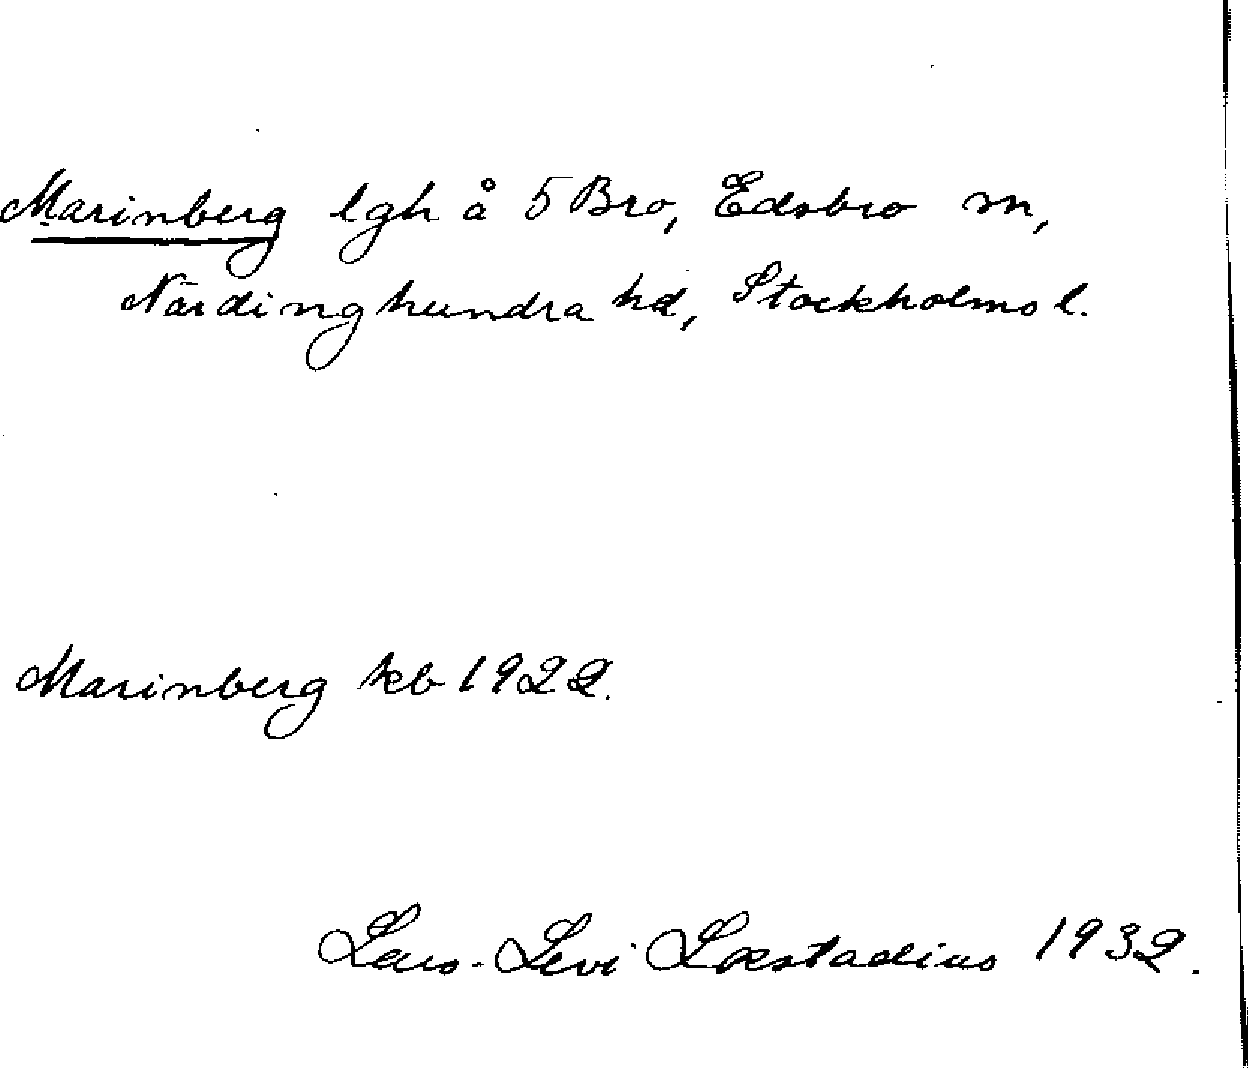 Marinberg lgh å 5 Bro, Edsbro sn,
Närdinghundra hd, Stockholms l.
Marinberg kb 1922.
Lars-Levi Læstadius 1932.